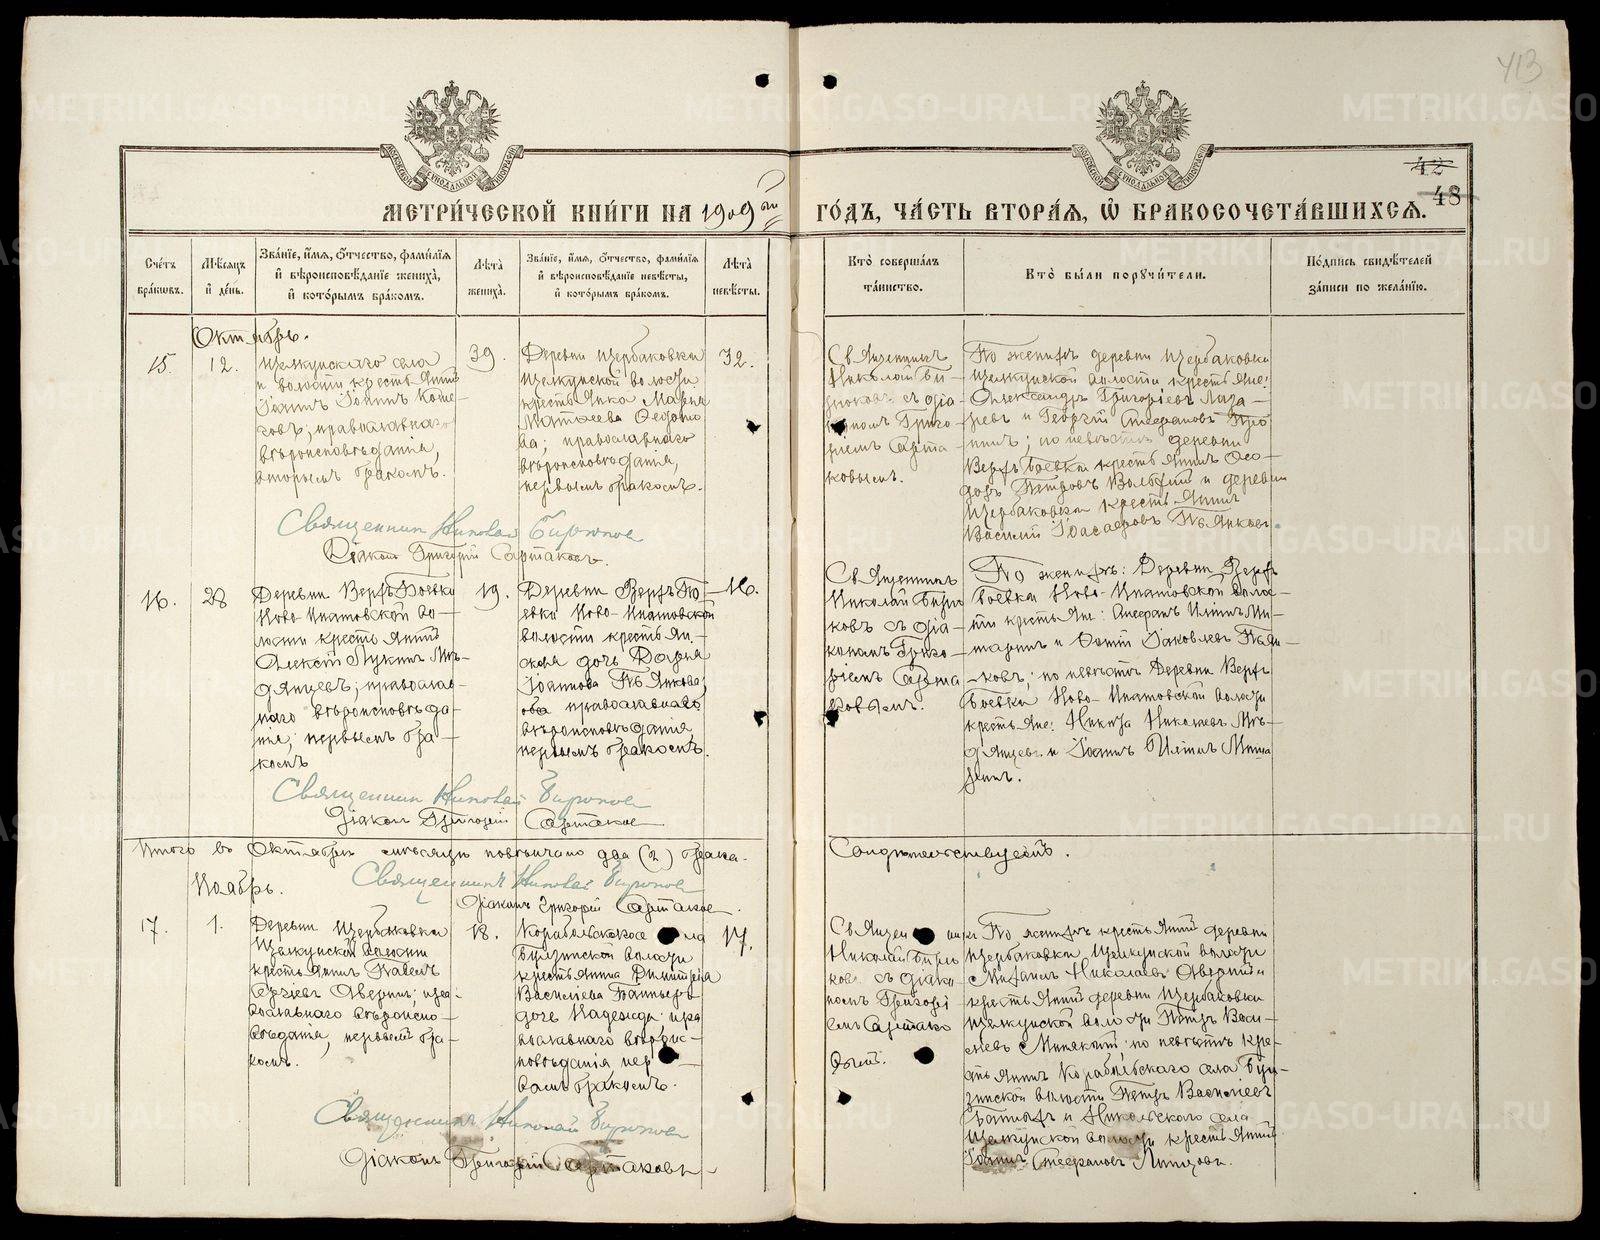 413
42
48
МЕТРИ́ЧЕСКОЙ КНИ́ГИ НА 1909 ый
ГО́ДЪ, ЧА́СТЬ ВТОРА́Я, Ѡ҆ БРАКОСОЧЕТА́ВШИХСЯ.
Сче́тъ бра́кѡвъ.
Мѣ́сяцъ и҆ де́нь.
Зва́нїе, и҆́мя, ѻ҆́тчество, фами́лїя
и҆ вѣроисповѣ́данїе жениха̀,
и҆ кото́рымъ бра́комъ.
Лѣ́та жениха̀.
Зва́нїе, и҆́мя, ѻ҆́тчество, фами́лїя
и҆ вѣроисповѣ́данїе невѣ́сты,
и҆ кото́рымъ бра́комъ.
Лѣ́та невѣ́сты.
Кто̀ соверша́лъ та́инство.
Кто̀ бы́ли порꙋчи́тели.
По́дпись свидѣ́телей за́писи по жела́нїю.
Октябрь.
15.
12.
Щелкунскаго села
и волости крестьянинъ
Іоаннъ Іоанновъ
православнаго
вѣроисповѣданія,
вторымъ бракомъ.
39.
Деревни Щербаковки
Щелкунской волости
крестьянка Марія
Матѳеева
православнаго
вѣроисповѣданія,
первымъ бракомъ.
32.
Священникъ
Николай Би-
рюковъ съ діа-
кономъ Григо-
ріемъ Сарта-
ковымъ.
По женихѣ деревни Щербаковки
Щелкунской волости крестьяне:
Александръ Григорьевъ Лаза-
ревъ и Георгій Стефановъ
по невѣстѣ деревни
Верхъ Боевки крестьянинъ
Петровъ и деревни
Щербаковки крестьянинъ
Василій Пьянковъ.
Священникъ Николай Бирюковъ
Діаконъ Григорій Сартаковъ.
16.
28
Деревни Верхъ-Боевки
Ново-Ипатовской во-
лости крестьянинъ
Алексѣй Лукинъ Мѣ-
дянцевъ; православ-
наго вѣроисповѣда-
нія, первымъ бра-
комъ
19.
Деревни Верхъ Бо-
евки Ново-Ипатовской
волости крестьян-
ская дочь Дарья
Іоаннова Пьянкова;
оба православнаго
вѣроисповѣданія
первымъ бракомъ.
16.
Священникъ
Николай Бирю
ковъ съ діа-
кономъ Григо-
ріемъ Сарта
ковымъ.
По женихѣ: Деревни Верхъ
Боевки Ново-Ипатовской воло-
сти крестьяне: Стефанъ Ильинъ
и Іаковлевъ Пьян-
ковъ; по невѣстѣ Деревни Верхъ
Боевки Ново-Ипатовской волости
крестьяне: Никита Николаевъ Мѣ-
дянцевъ и Іоаннъ Ильинъ
Священникъ Николай Бирюковъ
Діаконъ Григорій Сартаковъ
Итого въ Октябрѣ мѣсяцѣ повѣнчано два (2) брака.
Священникъ Николай Бирюковъ
Діаконъ Григорій Сартаковъ.
Ноябрь.
17.
1.
Деревни Щербаковки
Щелкунской волости
крестьянинъ Павелъ
Сергіевъ Аверинъ; пра-
вославнаго вѣроиспо-
вѣданія, первымъ бра-
комъ.
18.
Корабельскаго села
волости
крестьянина Димитрія
Васильева
дочь Надежда пра
вославнаго вѣроис-
повѣданія пер
вымъ бракомъ.
17.
Священникъ
Николай Бирю
ковъ съ діако
номъ Григорі
емъ Сартако
вымъ.
По женихѣ крестьянинъ деревни
Щербаковки Щелкунской волости
Михаилъ Николаевъ Аверинъ и
крестьянинъ деревни Щербаковки
Щелкунской волости Петръ Васи-
льевъ по невѣстѣ кре-
стьянинъ Корабельскаго села
волости Петръ Васильевъ
и Никольскаго села
Щелкунской волости крестьянинъ
Іоаннъ Стефановъ
Священникъ Николай Бирюковъ
Діаконъ Григорій Сартаковъ
METRIKI.GASO-URAL.RU